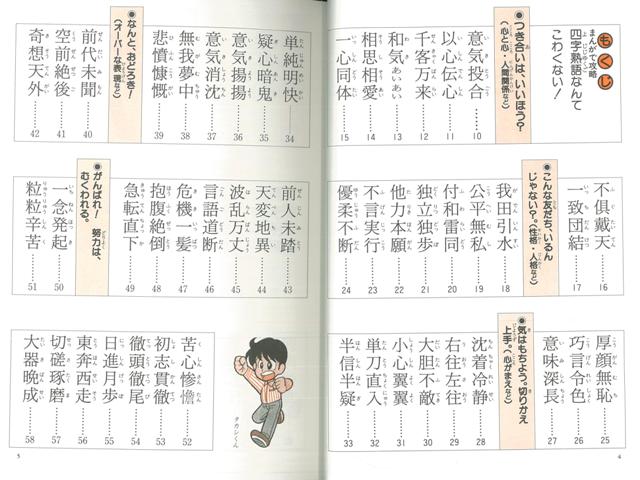 もくじ
まんがで攻略
四字熟語なんて
こわくない!
●つき合いは、いいほう?
(心と心・人間関係など)
意気投合……10
以心伝心……11
千客万来……12
和気あいあい……13
相思相愛……14
一心同体……15
不倶戴天……16
一致団結……17
●こんな友だち、いるん
じゃない?。(性格・人格など)
我田引水……18
公平無私……19
付和雷同……20
独立独歩……21
他力本願……22
不言実行……23
優柔不断……24
厚顔無恥……25
巧言令色……26
意味深長……27
●気はもちよう。切りかえ
上手。(心がまえなど)
沈着冷静……28
右往左往……29
大胆不敵……30
小心翼翼……31
単刀直入……32
半信半疑……33
4
単純明快……34
疑心暗鬼……35
意気揚揚……36
意気消沈……37
無我夢中……38
悲憤慷慨……39
●なんと、おどろき!
(オーバーな表現など)
前代未聞……40
空前絶後……41
奇想天外……42
前人未踏……43
天変地異……44
波乱万丈……45
言語道断……46
危機一髪……47
抱腹絶倒……48
急転直下……49
●がんばれ! 努力は、
むくわれる。
一念発起……50
粒粒辛苦……51
タカシくん
苦心惨憺……52
初志貫徹……53
徹頭徹尾……54
日進月歩……55
東奔西走……56
切磋琢磨……57
大器晩成……58
5